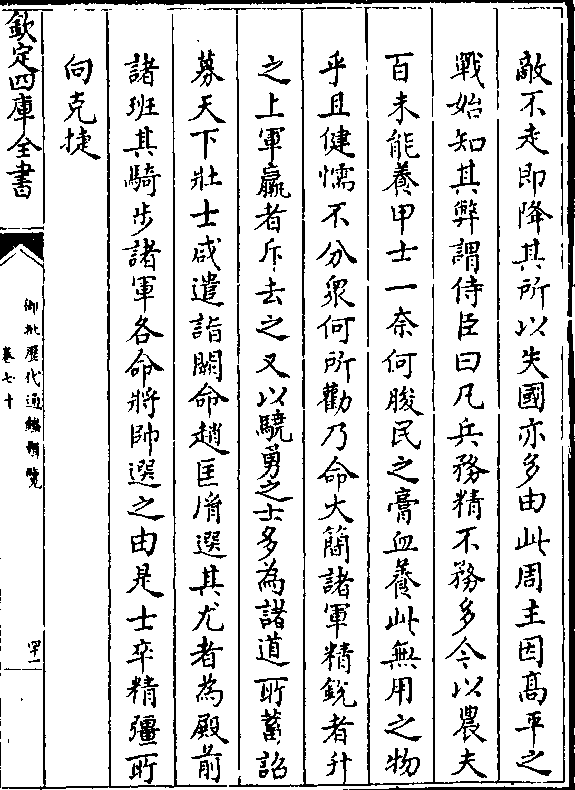 敵不走即降其所以失國亦多由此周主因髙平之
戰始知其弊謂侍臣曰凡兵務精不務多今以農夫
百未能養甲士一奈何朘民之膏血養此無用之物
乎且健懦不分衆何所勸乃命大簡諸軍精銳者升
之上軍羸者斥去之又以驍勇之士多為諸道所蓄詔
募天下壯士咸遣詣闕命趙匡𦙍選其尤者為殿前
諸班其騎步諸軍各命將帥選之由是士卒精彊所
向克捷
欽定四庫全書
御批歷代通鑑輯覽
卷七十
四十一